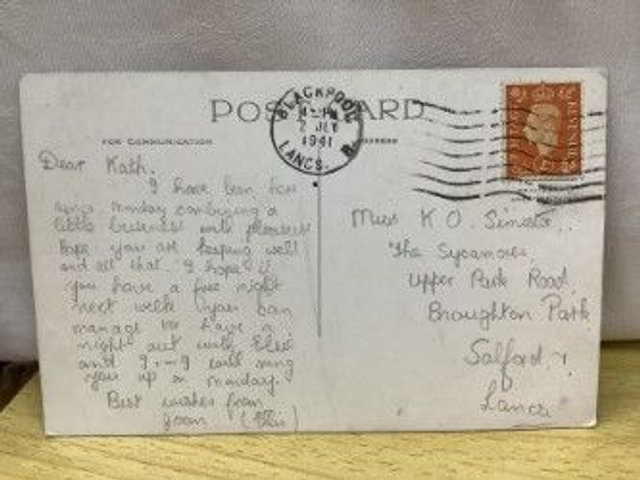 POST CARD
BLACKPOOL
2 JLY
1941
LANCS.
FOR COMMUNICATION
Dear Kath.
I have been here
since Monday combining a
little business with pleasure
hope you are keeping well
and all that. I hope if
you have a free night
next week you can
manage to have a
night out with Elsie
and I will ring
you up on Monday.
Best wishes from
Joan
Miss K O.
The Sycamores
Upper Park Road
Broughton Park
Salford. 7
Lancs